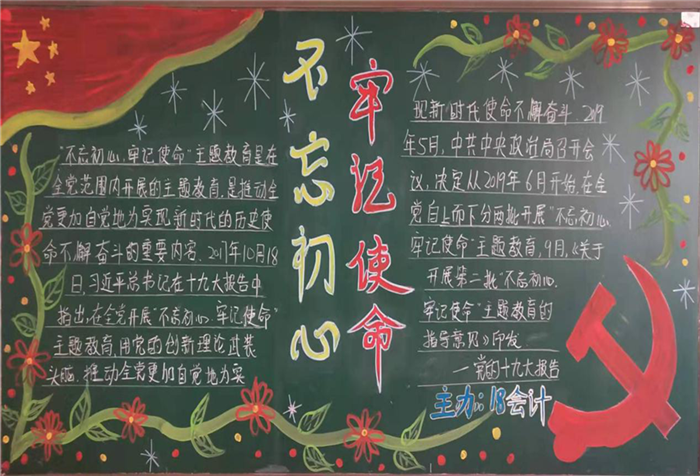 不忘初心
牢记使命
"不忘初心、牢记使命"主题教育是在
全党范围内开展的主题教育,是推动全
党更加自觉地为实现新时代的历史使
命不懈奋斗的重要内容、2017年10月18
日,习近平总书记在十九大报告中
指出,在全党开展"不忘初心、牢记使命"
主题教育,用党的创新理论武装
头脑,推动全党更加自觉地为实
现新时代使命不懈奋斗、2019
年5月,中共中央政治局召开会
议,决定从2019年6月开始,在全
党自上而下分两批开展"不忘初心、
牢记使命"主题教育,9月,《关于
开展第二批"不忘初心、
牢记使命"主题教育的
指导意见》印发
—党的十九大报告
主办:18会计